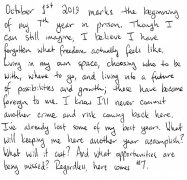 October 1st 2013 marks the beginning
of my 7th year in prison. Though I
can still imagine, I believe I have
forgotten what freedom actually feels like.
Living in my own space, choosing who to be
with, where to go, and living into a future
of possibilities and growth; these have become
foreign to me. I know I'll never commit
another crime and risk coming back here.
I've already lost some of my best years. What
will keeping me here another year accomplish?
What will it cost? And what opportunities are
being missed? Regardless, here comes #7.